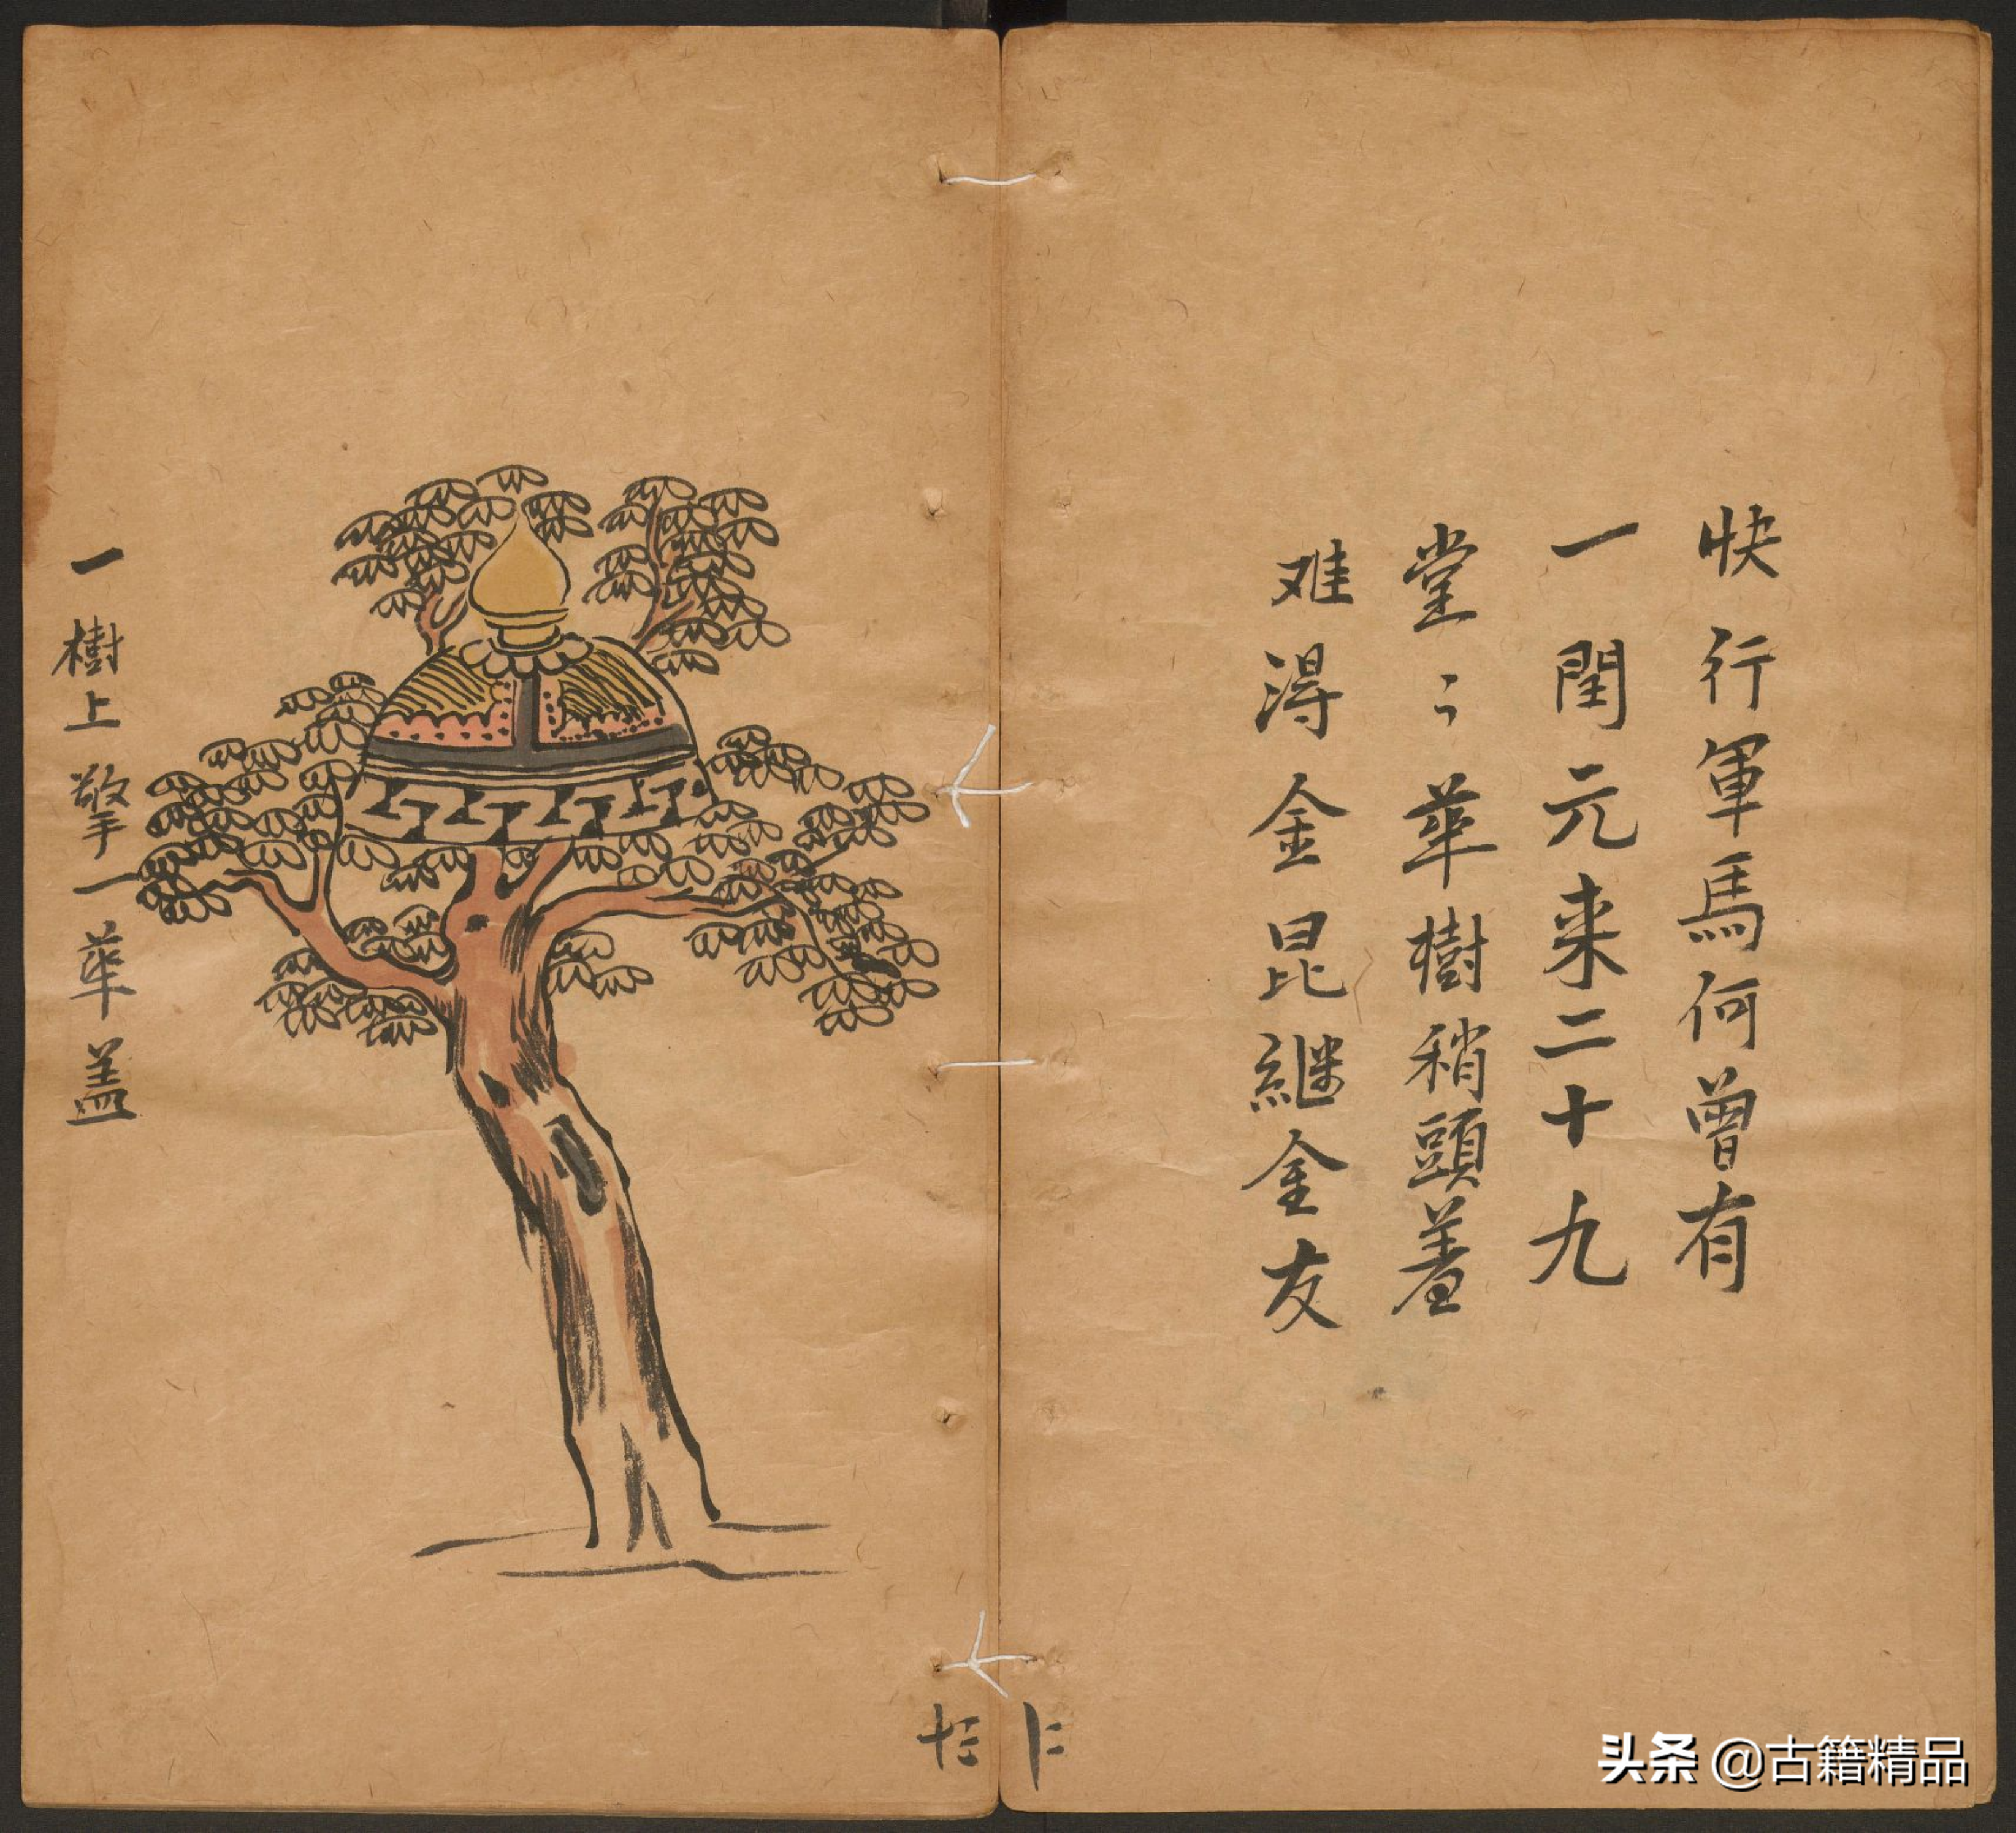 快行軍馬何曾有
一閏元来二十九
堂〻華樹稍頭着
难淂金昆継金友
一樹上擎一華盖
头条 @古籍精品